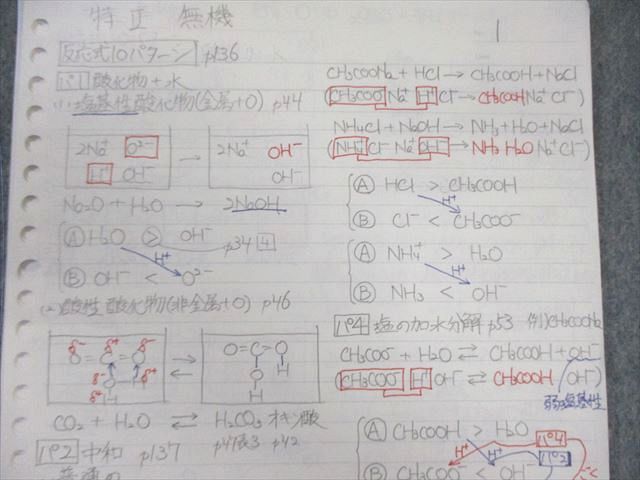 特正 無機
1
反応式10パターン p136
パ1 酸化物+水
(1) 塩基性酸化物(金属+O) p44
2Na⁺ O²⁻ → 2Na⁺ OH⁻
H⁺ OH⁻ OH⁻
Na₂O + H₂O → 2NaOH
Ⓐ H₂O > OH⁻ p34 4
H⁺
Ⓑ OH⁻ < O²⁻
(2) 酸性酸化物(非金属+O) p46
δ⁻ δ⁺ δ⁻
O=C=O ⇄ O=C-O
δ⁻ O H δ⁺ O H
δ⁺ H H
CO₂ + H₂O ⇄ H₂CO₃ オキソ酸
p47表3 p42
パ2 中和 p137
CH₃COONa + HCl → CH₃COOH + NaCl
(CH₃COO⁻ Na⁺ H⁺ Cl⁻ → CH₃COOH Na⁺ Cl⁻)
NH₄Cl + NaOH → NH₃ + H₂O + NaCl
(NH₄⁺ Cl⁻ Na⁺ OH⁻ → NH₃ H₂O Na⁺ Cl⁻)
Ⓐ HCl > CH₃COOH
H⁺
Ⓑ Cl⁻ < CH₃COO⁻
Ⓐ NH₄⁺ > H₂O
H⁺
Ⓑ NH₃ < OH⁻
パ4 塩の加水分解 p53 例) CH₃COONa
CH₃COO⁻ + H₂O ⇄ CH₃COOH + OH⁻
(CH₃COO⁻ H⁺ OH⁻ ⇄ CH₃COOH OH⁻)
弱塩基性
Ⓐ CH₃COOH > H₂O パ4
H⁺ H⁺ パ2
Ⓑ CH₃COO⁻ < OH⁻